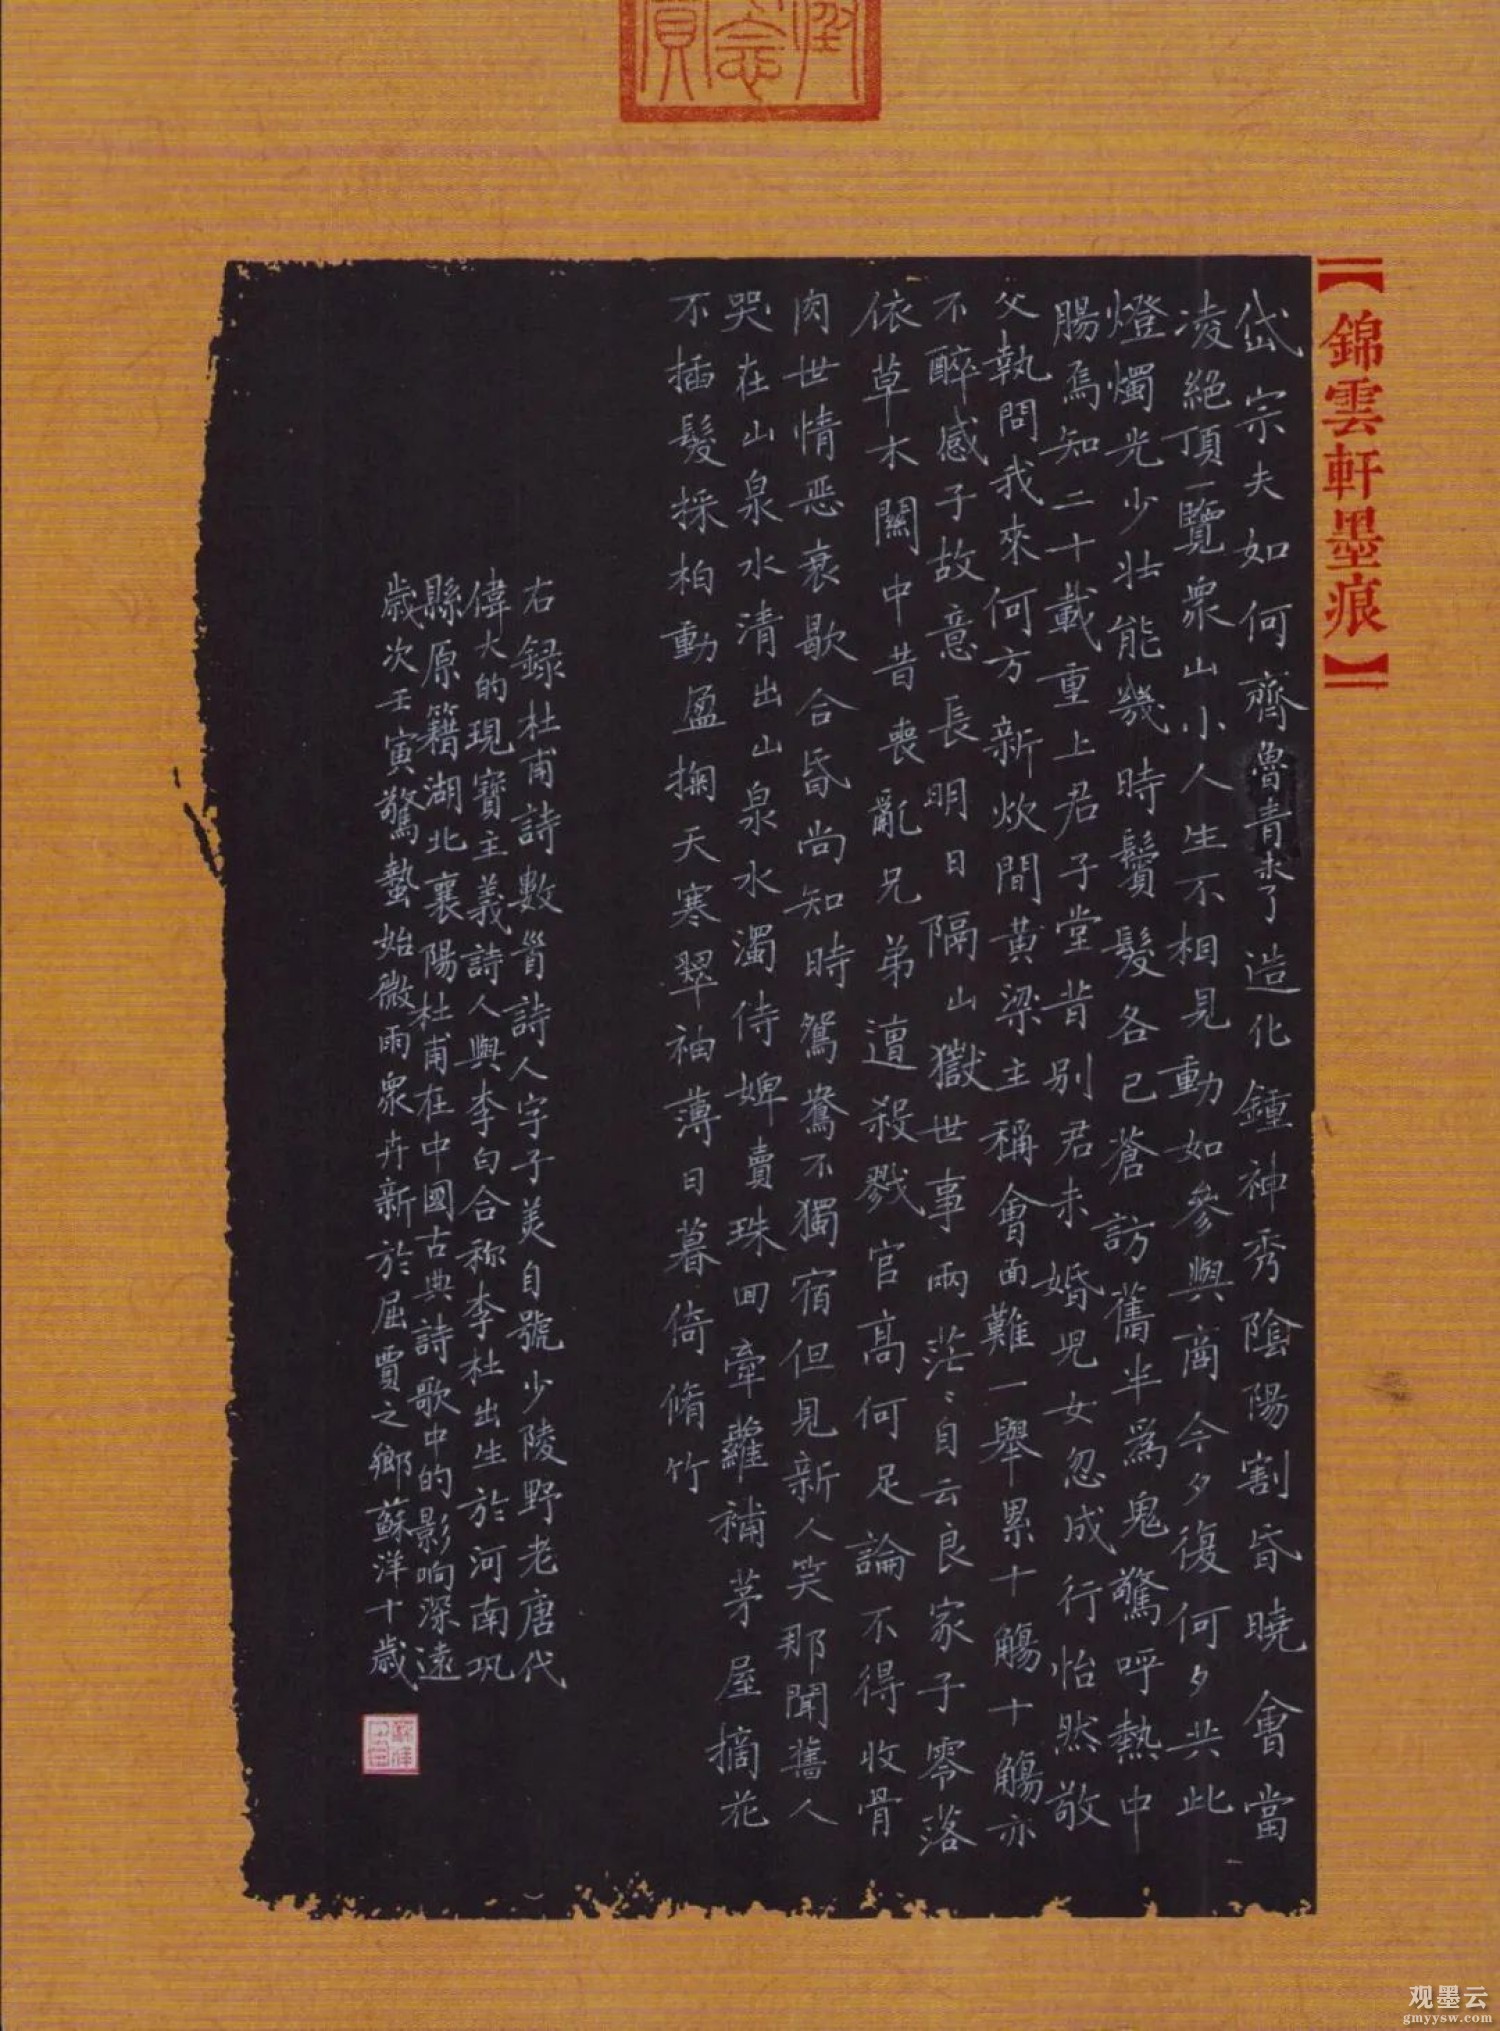 錦雲軒墨痕
岱宗夫如何齊魯青未了造化鍾神秀陰陽割昏曉會當
凌絕頂一覽衆山小人生不相見動如參與商今夕復何夕共此
燈燭光少壯能幾時鬢髮各已蒼訪舊半爲鬼驚呼熱中
腸焉知二十載重上君子堂昔別君未婚児女忽成行怡然敬
父執問我來何方新炊間黃梁主稱會面難一舉累十觴十觴亦
不醉感子故意長明日隔山嶽世事兩茫〻自云良家子零落
依草木關中昔喪亂兄弟遭殺戮官高何足論不得收骨
肉世情恶衰歇合昏尚知時鴛鴦不獨宿但見新人笑那聞舊人
哭在山泉水清出山泉水濁侍婢賣珠回牽蘿補茅屋摘花
不插髮採柏動盈掬天寒翠袖薄日暮倚脩竹
右録杜甫詩數首詩人字子美自號少陵野老唐代
偉大的現實主義詩人與李白合称李杜出生於河南巩
縣原籍湖北襄陽杜甫在中國古典詩歌中的影响深遠
歲次壬寅驚蟄始微雨衆卉新於屈賈之鄉蘇洋十歲
观墨云
gmyysw.com